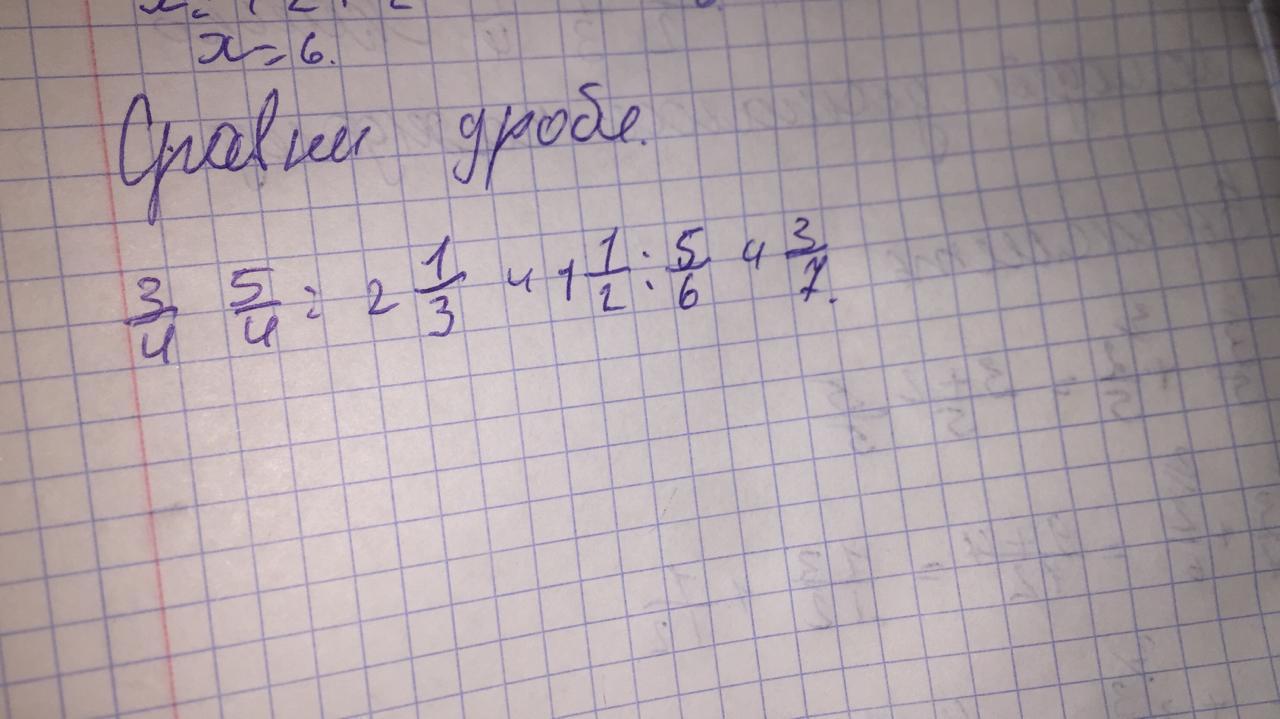 x=6.
Сравни дробе.
3/4 5/4 : 2 1/3 и 1 1/2 : 5/6 и 3/7.